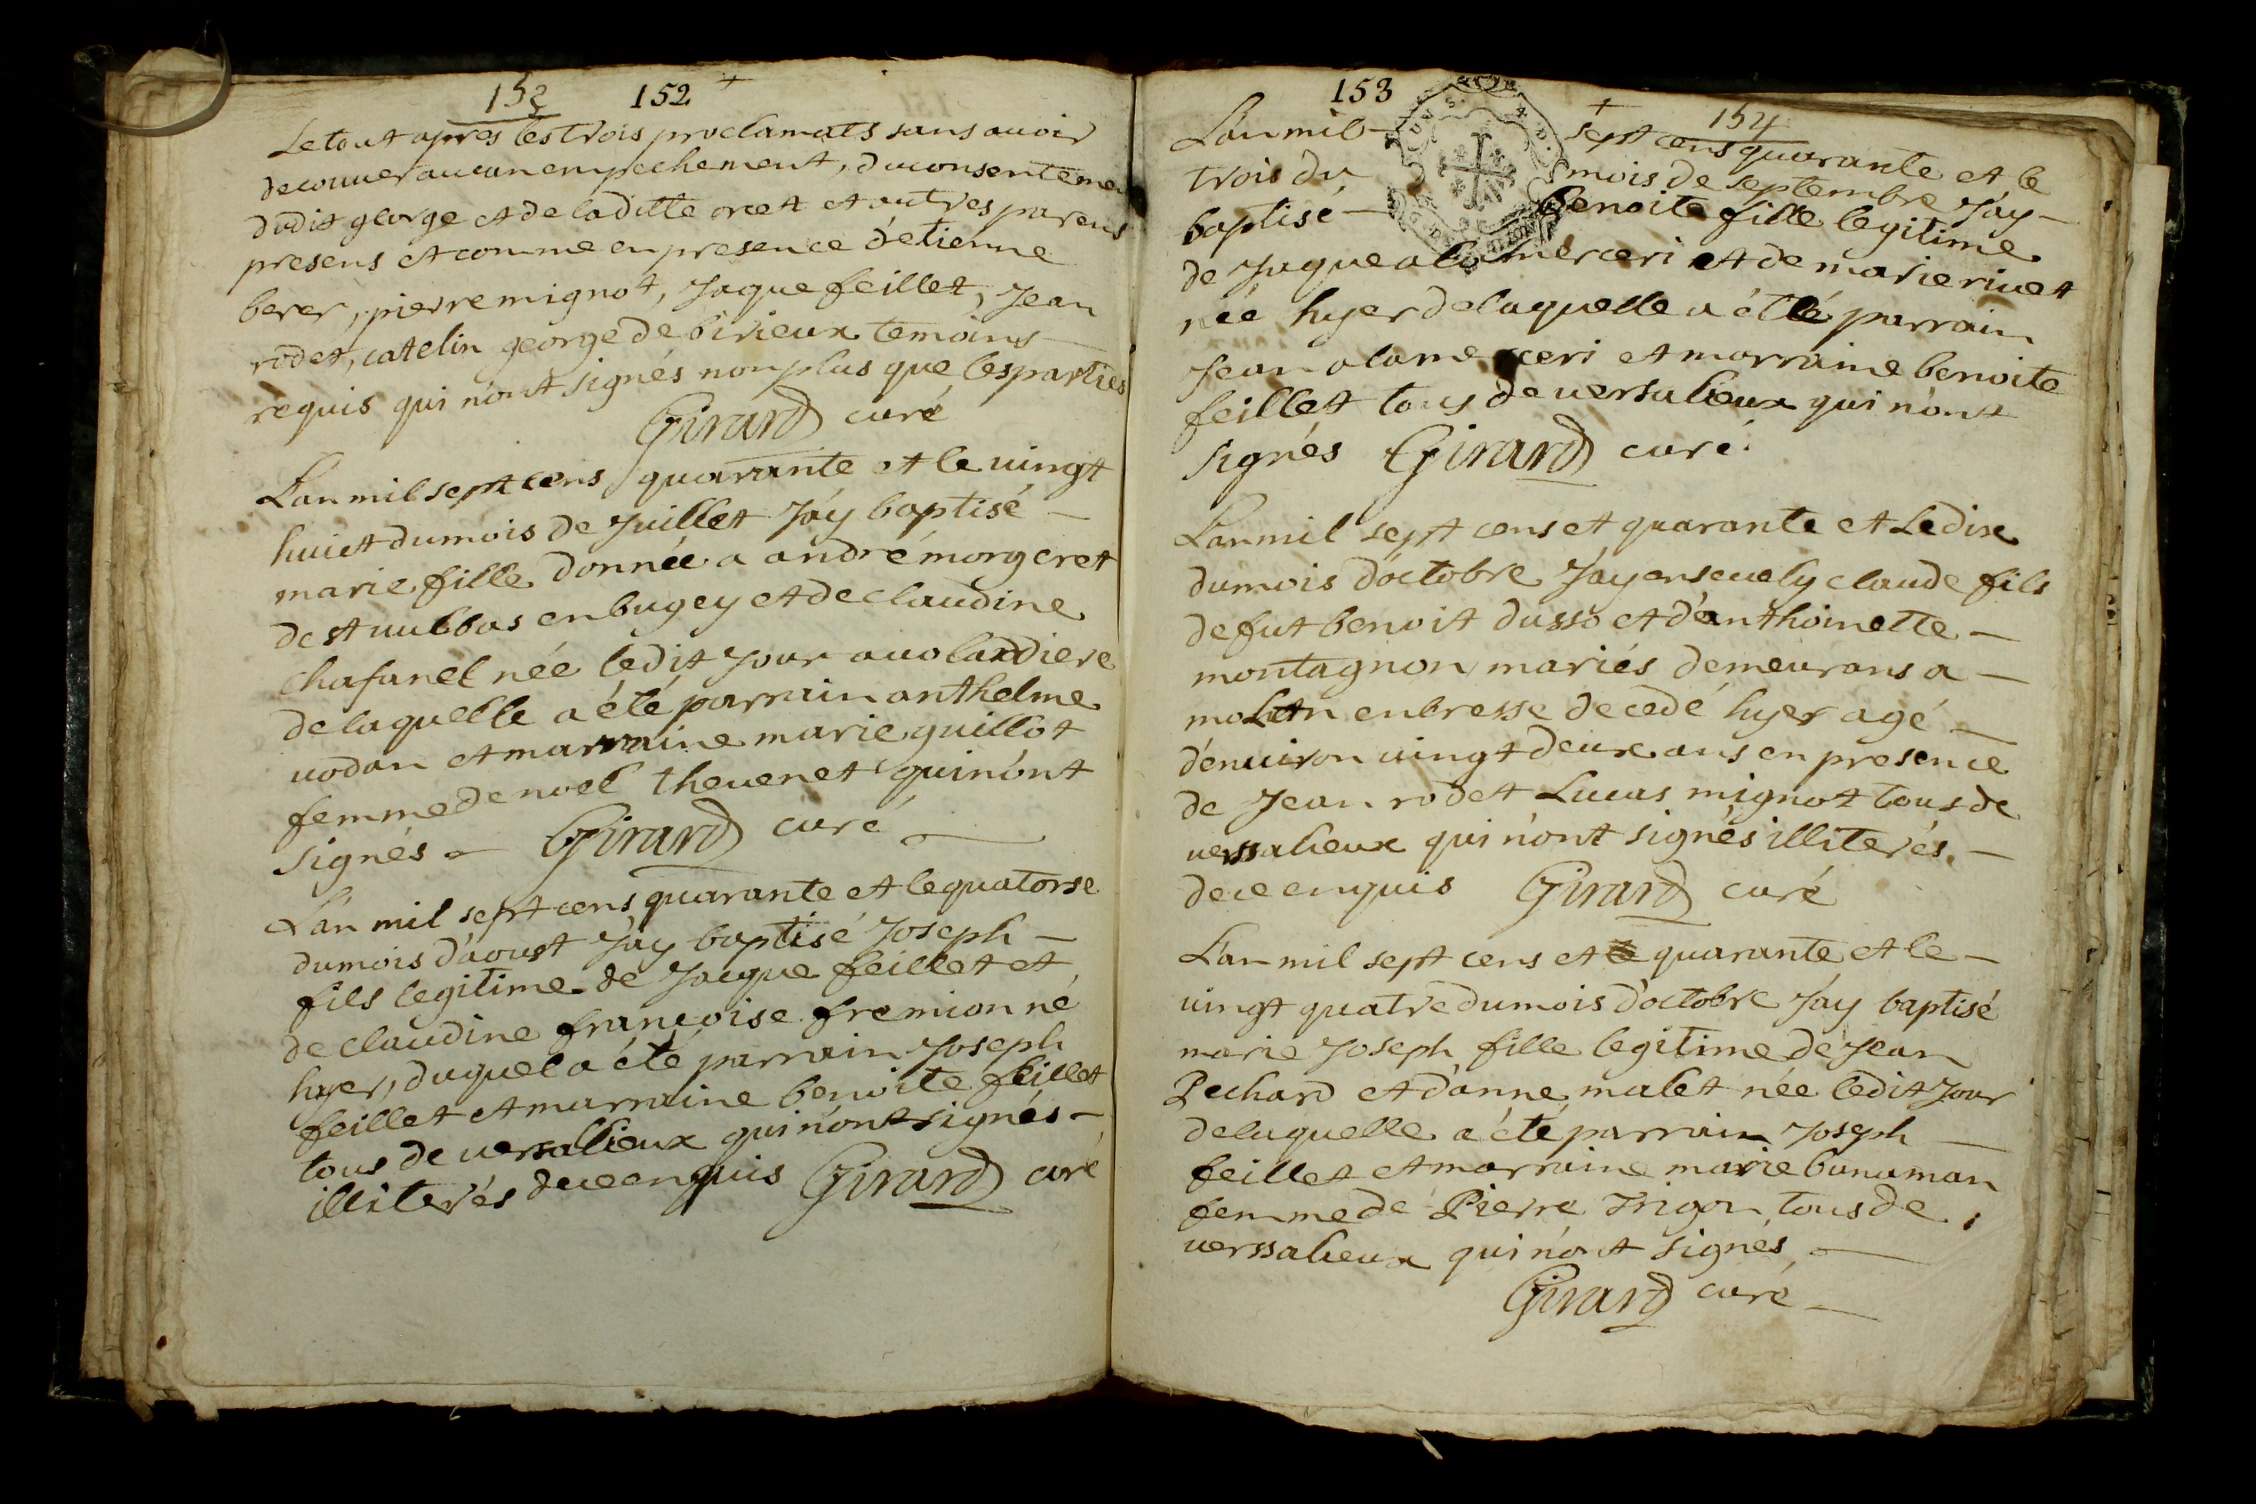 153 152 +
Le tout apres les trois proclamats sans avoir
decouver aucun empechement, du consenteme
dudit george et de la ditte oret et autres parens
presens et comme en presence d'etienne
berer, pierre mignot, Jaque feillet, Jean
rodet, catelin george de birieux temoins —
requis qui n'ont signés non plus que les parties
Girard curé
L'an mil sept cens quarante et le vingt
huict du mois de Juillet J'ay baptisé —
marie fille donnée a andré morgeret
de st vulbas en bugey et de claudine
chafanel née ledit Jour a
de laquelle a été parrain anthelme
vodan et marraine marie guillot
femme de noel thevenet qui n'ont
signés — Girard curé —
L'an mil sept cens quarante et le quatorse
du mois d'aoust J'ay baptisé Joseph —
fils legitime de Jacque feillet et
de claudine françoise fremion né
hyer, duquel a été parrain Joseph
feillet et marraine benoite feillet
tous de versallieux qui n'ont signés —
illiterés de ce enquis Girard curé
153 + 154
L'an mil — sept cens quarante et le
trois du mois de septembre J'ay —
baptisé — Benoite fille legitime
de Jaque alamerceri et de marie rivet
née hyer de laquelle a étté parrain
Jean alamerceri et marraine benoite
feillet tous de versalieux qui n'ont
signés Girard curé.
L'an mil sept cens et quarante et Le dix
du mois d'octobre J'ay ensevely claude fils
de fut benoit dusso et d'anthoinette —
montagnon mariés demeurans a —
en bresse decedé hyer agé —
d'environ vingt deux ans en presence
de Jean rodet Lucas mignot tous de
versalieux qui n'ont signés illiterés. —
de ce enquis Girard curé
L'an mil sept cens et quarante et le —
vingt quatre du mois d'octobre J'ay baptisé
marie Joseph fille legitime de Jean
Pechard et d'anne malet née ledit Jour
de laquelle a été parrain Joseph —
feillet et marraine marie banaman
femme de Pierre Trigon tous de
verssalieux qui n'ont signés —
Girard curé —